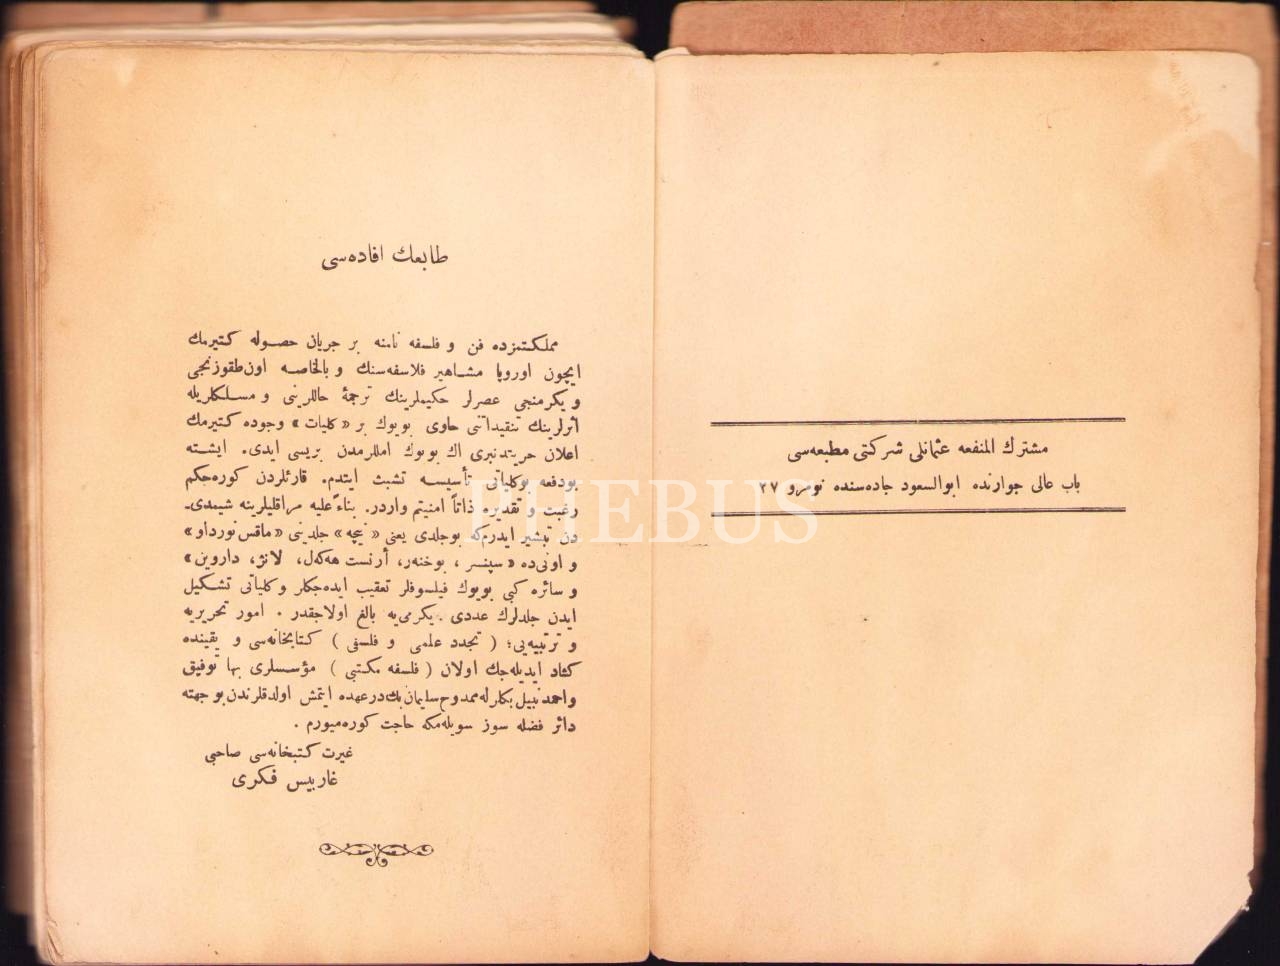 مشترك المنفعه عثمانلى شركتى مطبعه‌سى
باب عالى جوارنده ابوالسعود جاده‌سنده نومرو ٢٧
طابعك افاده‌سى
مملكتمزده فن و فلسفه نامنه بر جريان حصوله كتيرمك
ايچون اوروپا مشاهير فلاسفه‌سنك و بالخاصه اون‌طقوزنجى
و يكرمنجى عصرلر حكيملرينك ترجمۀ حاللرينى و مسلكلريله
اثرلرينك تنقيداتنى حاوى بويوك بر «كليات» وجوده كتيرمك
اعلان حريتدنبرى اك بويوك امللرمدن بريسى ايدى. ايشته
بودفعه بوكلياتى تأسيسه تشبث ايتدم. قارئلردن كوره‌جكم
رغبت و تقديره ذاتاً امنيتم واردر. بناءً عليه مراقليلرينه شيمدى‌ـ
دن تبشير ايدرم‌كه بوجلدى يعنى «نيچه» جلدينى «ماقس نورداو»
و اونى‌ده «سپنسر ، بوخنەر، أرنست هەكەل، لانژ، داروين»
و سائره كبى بويوك فيلسوفلر تعقيب ايده‌جكلر و كلياتى تشكيل
ايدن جلدلرك عددى يكرمى‌يه بالغ اولاجقدر . امور تحريريه
و ترتبيه‌يى؛ ( تجدد علمى و فلسفى ) كتابخانه‌سى و يقينده
كشاد ايديله‌جك اولان ( فلسفه مكتبى ) مؤسسلرى بها توفيق
واحمد نبيل بكلرله ممدوح سليمان بك درعهده ايتمش اولدقلرندن بوجهته
دائر فضله سوز سويله‌مكه حاجت كوره‌ميورم .
غيرت كتبخانه‌سى صاحبى
غاربيس فكرى
PHEBUS